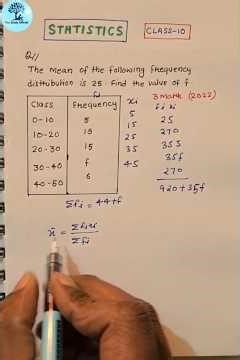 STATISTICS
CLASS-10
Q1//
The mean of the following frequency
distribution is 25. Find the value of f.
3 Mark (2022)
Class Frequency fi xi fi xi
0-10 5 5 25
10-20 18 15 270
20-30 15 25 355
30-40 f 35 35f
40-50 6 45 270
Σfi = 44+f 920+35f
x̄ = Σfixi / Σfi